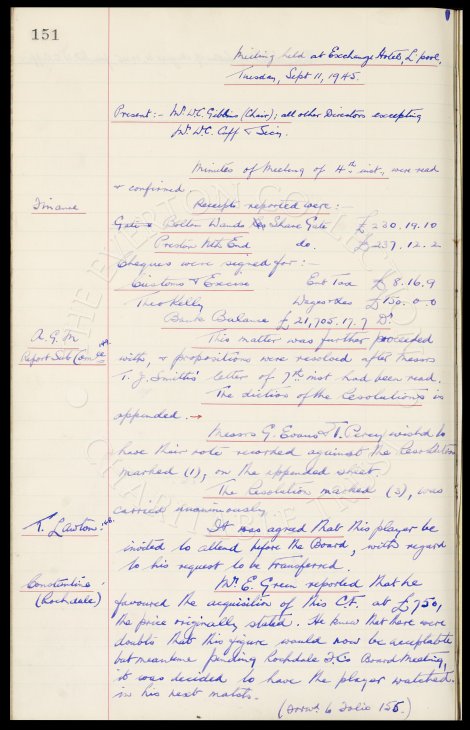 151
Meeting held at Exchange Hotel, L'pool,
Tuesday, Sept 11, 1945.
Present:- Mr. W.C. Gibbins (Chair); all other Directors excepting
Mr. W.C. Cuff & Secy.
Minutes of Meeting of 4th inst., were read
& confirmed.
Finance
Receipts reported were:-
Gate Bolton Wands Res Share Gate £230.19.10
Preston Nth End do. £237.12.2
Cheques were signed for:-
Customs & Excise Ent Tax £8.16.9
Theo Kelly Wages Res £150.0.0
Bank Balance £21,905.17.7 Dr.
A.G.M
Report Sub Com'ee
This matter was further proceeded
with, & propositions were resolved after Messrs
T.J. Smith's letter of 7th inst had been read.
The diction of the Resolutions is
appended. →
Messrs G. Evans & T. Percy wished to
have their vote recorded against the Resolution
marked (1), on the appended sheet.
The Resolution marked (3), was
carried unanimously.
T. Lawton:
It was agreed that this player be
invited to attend before the Board, with regard
to his request to be transferred.
Constantine:
(Rochdale)
Mr. E. Green reported that he
favoured the acquisition of this C.F. at £750,
the price originally stated. He knew that here were
doubts that this figure would now be acceptable
but meantime pending Rochdale F.Co Board Meeting,
it was decided to have the player watched
in his next match.
to Folio 155.)
THE EVERTON COLLECTION
CHARITABLE TRUST